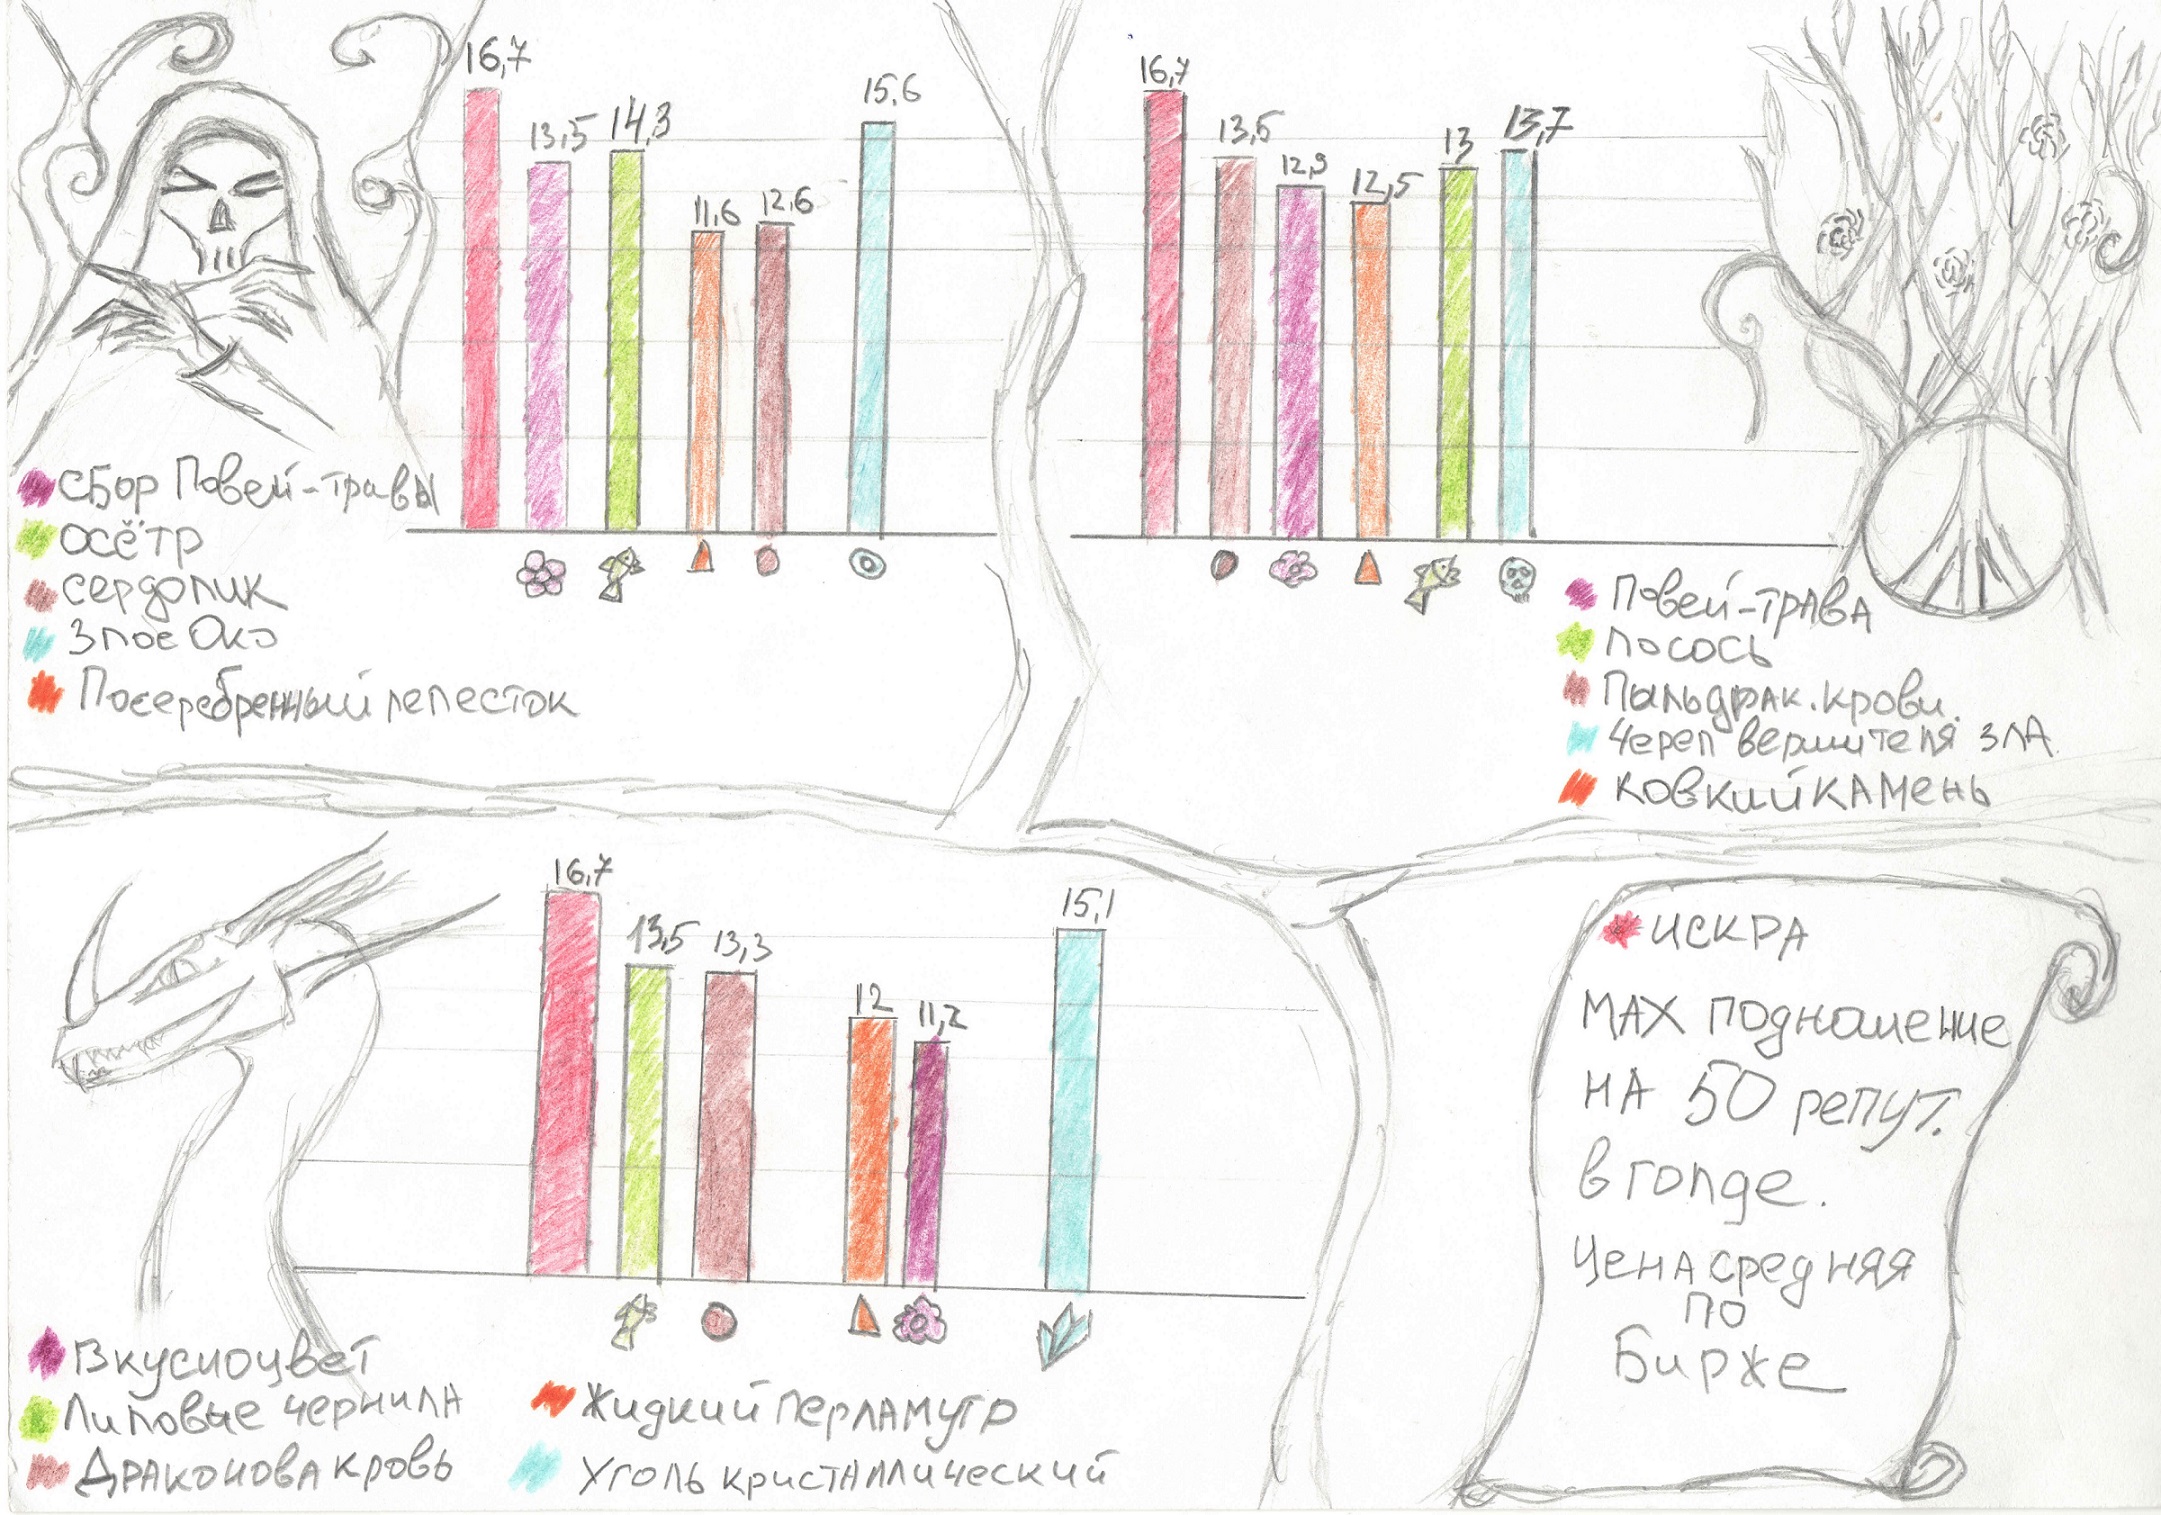 16,7
13,5
14,3
11,6
12,6
15,6
СБОР Повей-травы
осётр
сердолик
Злое Око
Посеребренный лепесток
16,7
13,5
12,9
12,5
13
13,7
Повей-трава
лосось
Пыль драк. крови.
Череп вершителя зла
ковкий камень
16,7
13,5
13,3
12
11,2
15,1
Вкусноцвет
Липовые чернила
Драконова кровь
Жидкий перламутр
Уголь кристаллический
ИСКРА
МАХ подношение
НА 50 репут.
в голде.
Цена средняя
по
Бирже